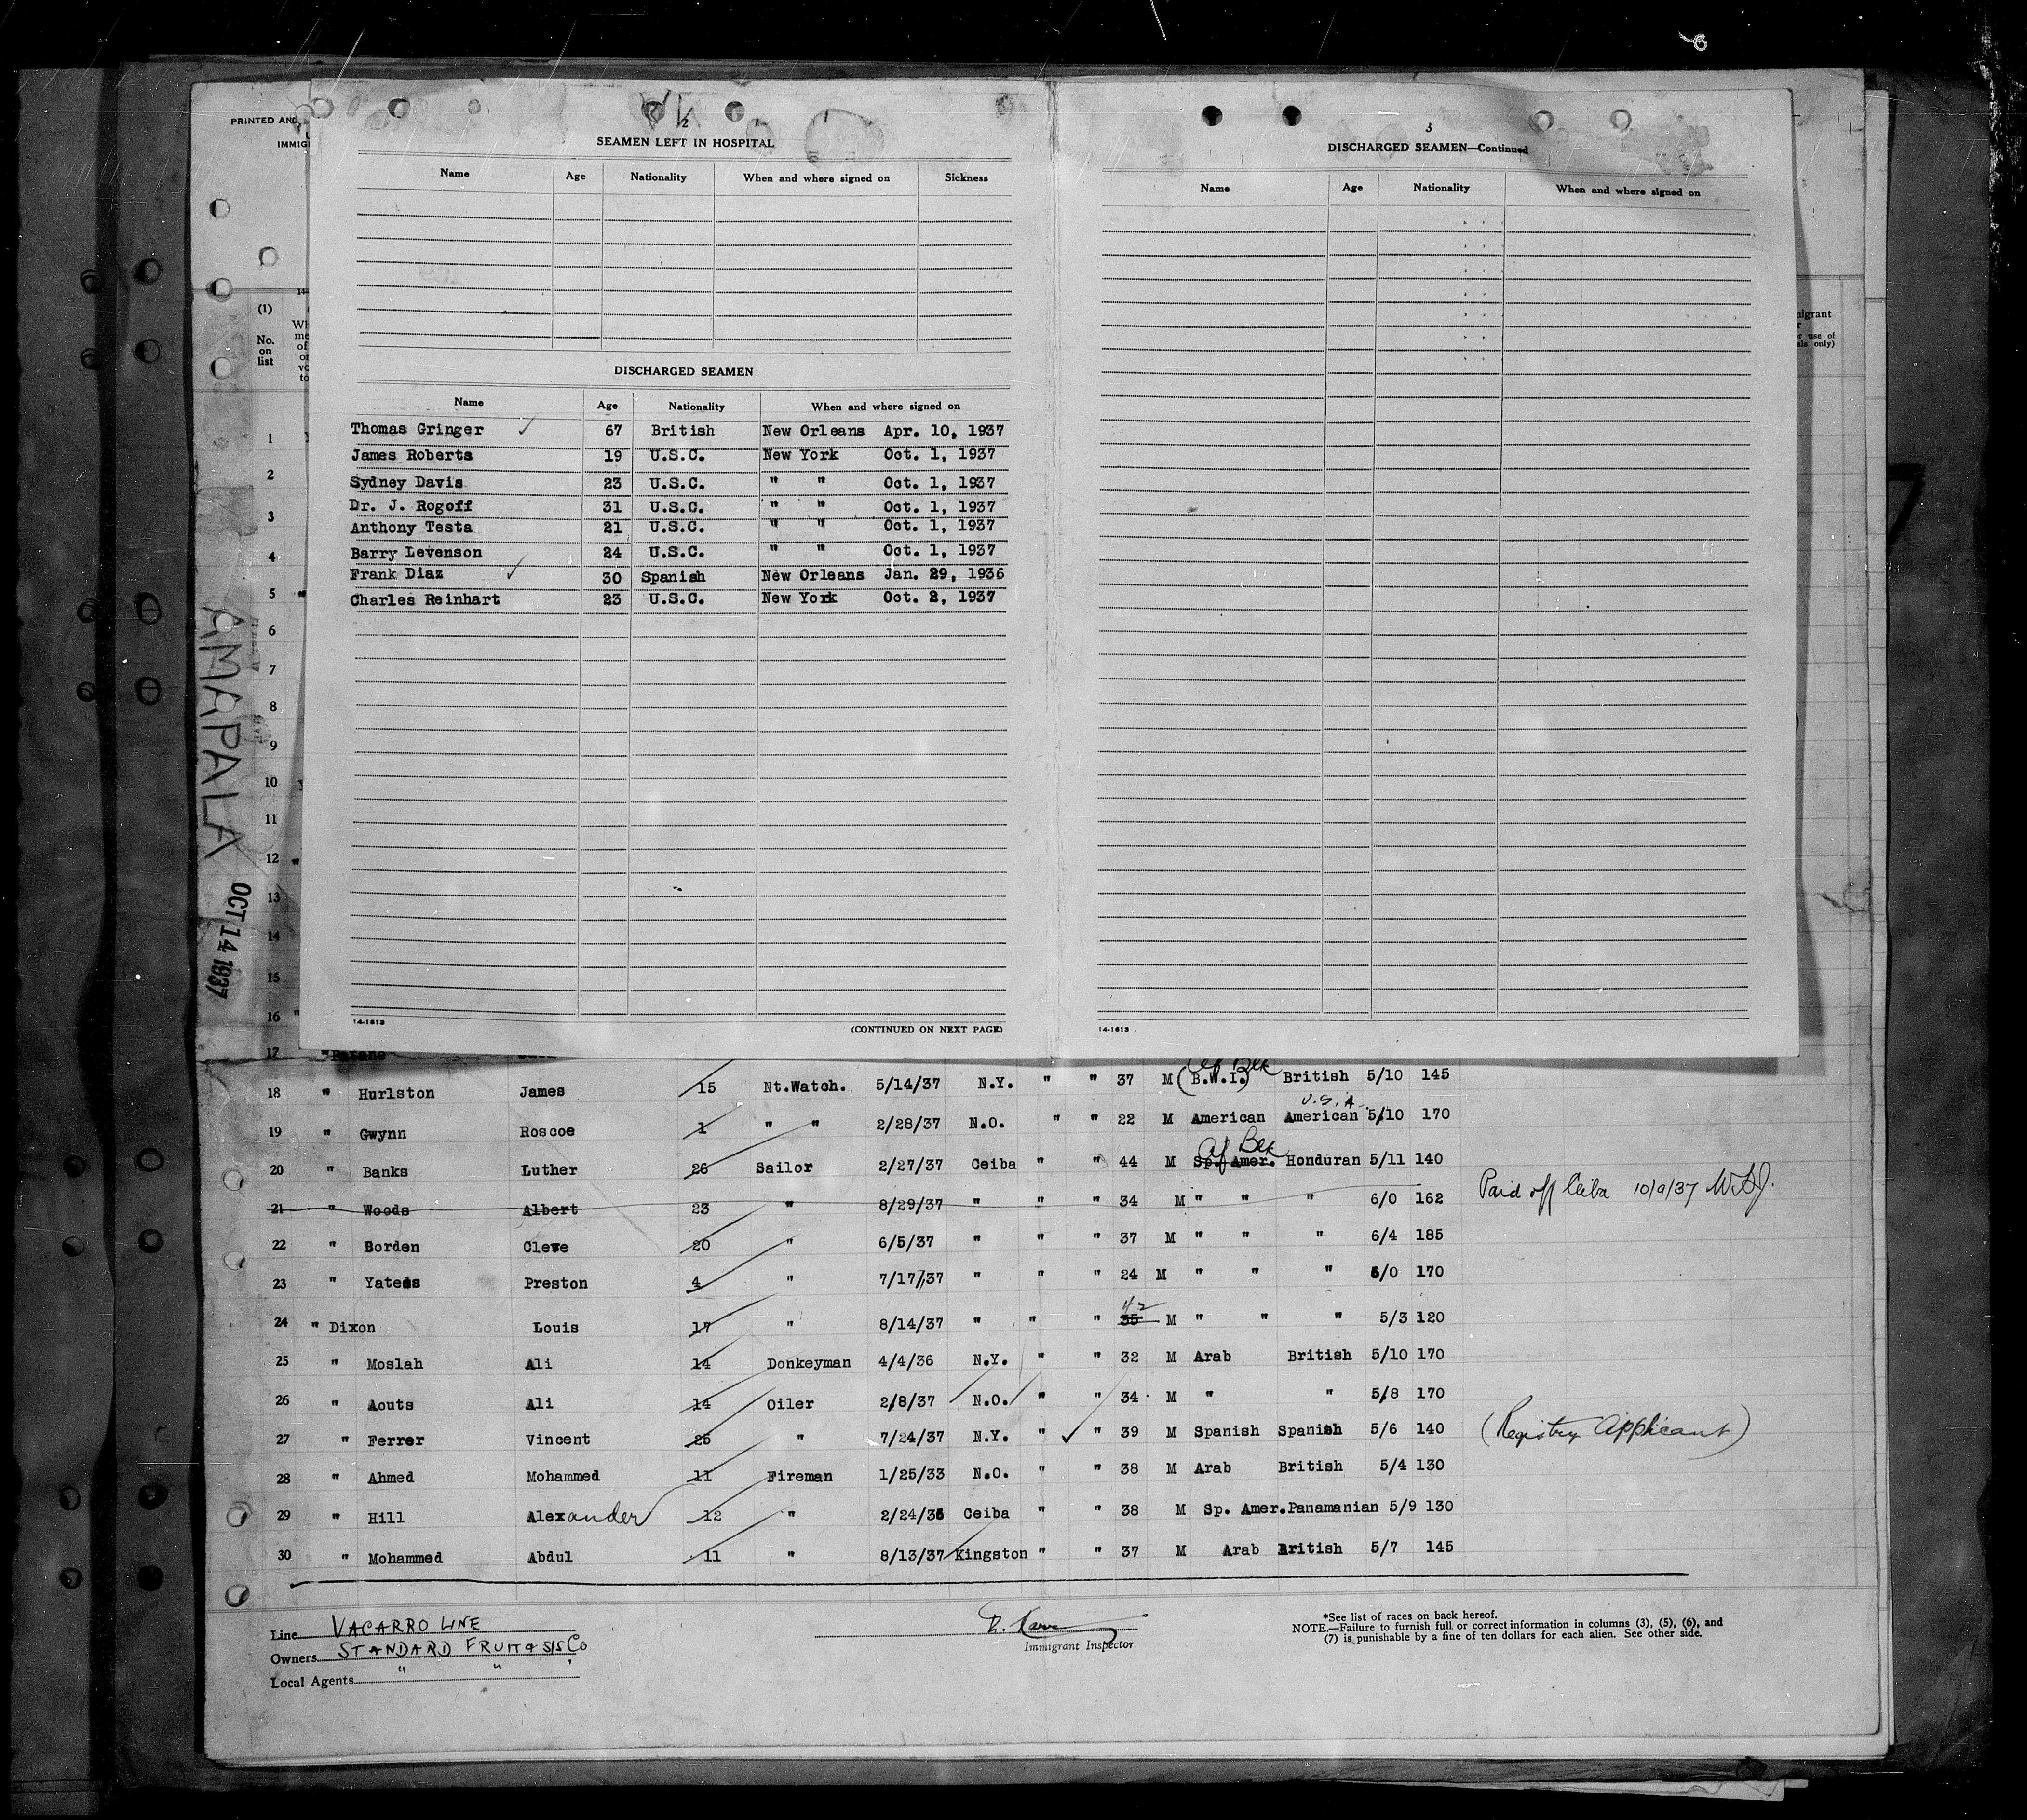 PRINTED AND
IMMIG
2
SEAMEN LEFT IN HOSPITAL
Name Age Nationality When and where signed on Sickness
DISCHARGED SEAMEN
Name Age Nationality When and where signed on
Thomas Gringer ✓ 67 British New Orleans Apr. 10, 1937
James Roberts 19 U.S.C. New York Oct. 1, 1937
Sydney Davis 23 U.S.C. " " Oct. 1, 1937
Dr. J. Rogoff 31 U.S.C. " " Oct. 1, 1937
Anthony Testa 21 U.S.C. " " Oct. 1, 1937
Barry Levenson 24 U.S.C. " " Oct. 1, 1937
Frank Diaz ✓ 30 Spanish New Orleans Jan. 29, 1936
Charles Reinhart 23 U.S.C. New York Oct. 2, 1937
14-1613 (CONTINUED ON NEXT PAGE)
3
DISCHARGED SEAMEN—Continued
Name Age Nationality When and where signed on
14-1613
(1)
No.
on
list
1
2
3
4
5 "
6
7
8
9
10
11
12 "
13
14
15
16 "
17
AMAPALA
OCT 14 1937
Af Blk
18 " Hurlston James 15 Nt.Watch. 5/14/37 N.Y. " " 37 M (B.W.I.) British 5/10 145
U.S.A.
19 " Gwynn Roscoe 1 " " 2/28/37 N.O. " " 22 M American American 5/10 170
Af Blk
20 " Banks Luther 26 Sailor 2/27/37 Ceiba " " 44 M Sp. Amer. Honduran 5/11 140
21 " Woods Albert 23 " 8/29/37 " " " 34 M " " " 6/0 162 Paid off Ceiba 10/9/37
22 " Borden Cleve 20 " 6/5/37 " " " 37 M " " " 6/4 185
23 " Yateds Preston 4 " 7/17/37 " " " 24 M " " " 6/0 170
42
24 " Dixon Louis 17 " 8/14/37 " " " 35 M " " " 5/3 120
25 " Moslah Ali 14 Donkeyman 4/4/36 N.Y. " " 32 M Arab British 5/10 170
26 " Aouts Ali 14 Oiler 2/8/37 N.O. " " 34 M " " 5/8 170
27 " Ferrer Vincent 25 " 7/24/37 N.Y. " ✓ " 39 M Spanish Spanish 5/6 140 (Registry Applicant)
28 " Ahmed Mohammed 11 Fireman 1/25/33 N.O. " " 38 M Arab British 5/4 130
29 " Hill Alexander 12 " 2/24/36 Ceiba " " 38 M Sp. Amer. Panamanian 5/9 130
30 " Mohammed Abdul 11 " 8/13/37 Kingston " " 37 M Arab British 5/7 145
Line VACARRO LINE
Owners STANDARD FRUIT & S/S Co
Local Agents " " "
Immigrant Inspector
*See list of races on back hereof.
NOTE.—Failure to furnish full or correct information in columns (3), (5), (6), and
(7) is punishable by a fine of ten dollars for each alien. See other side.